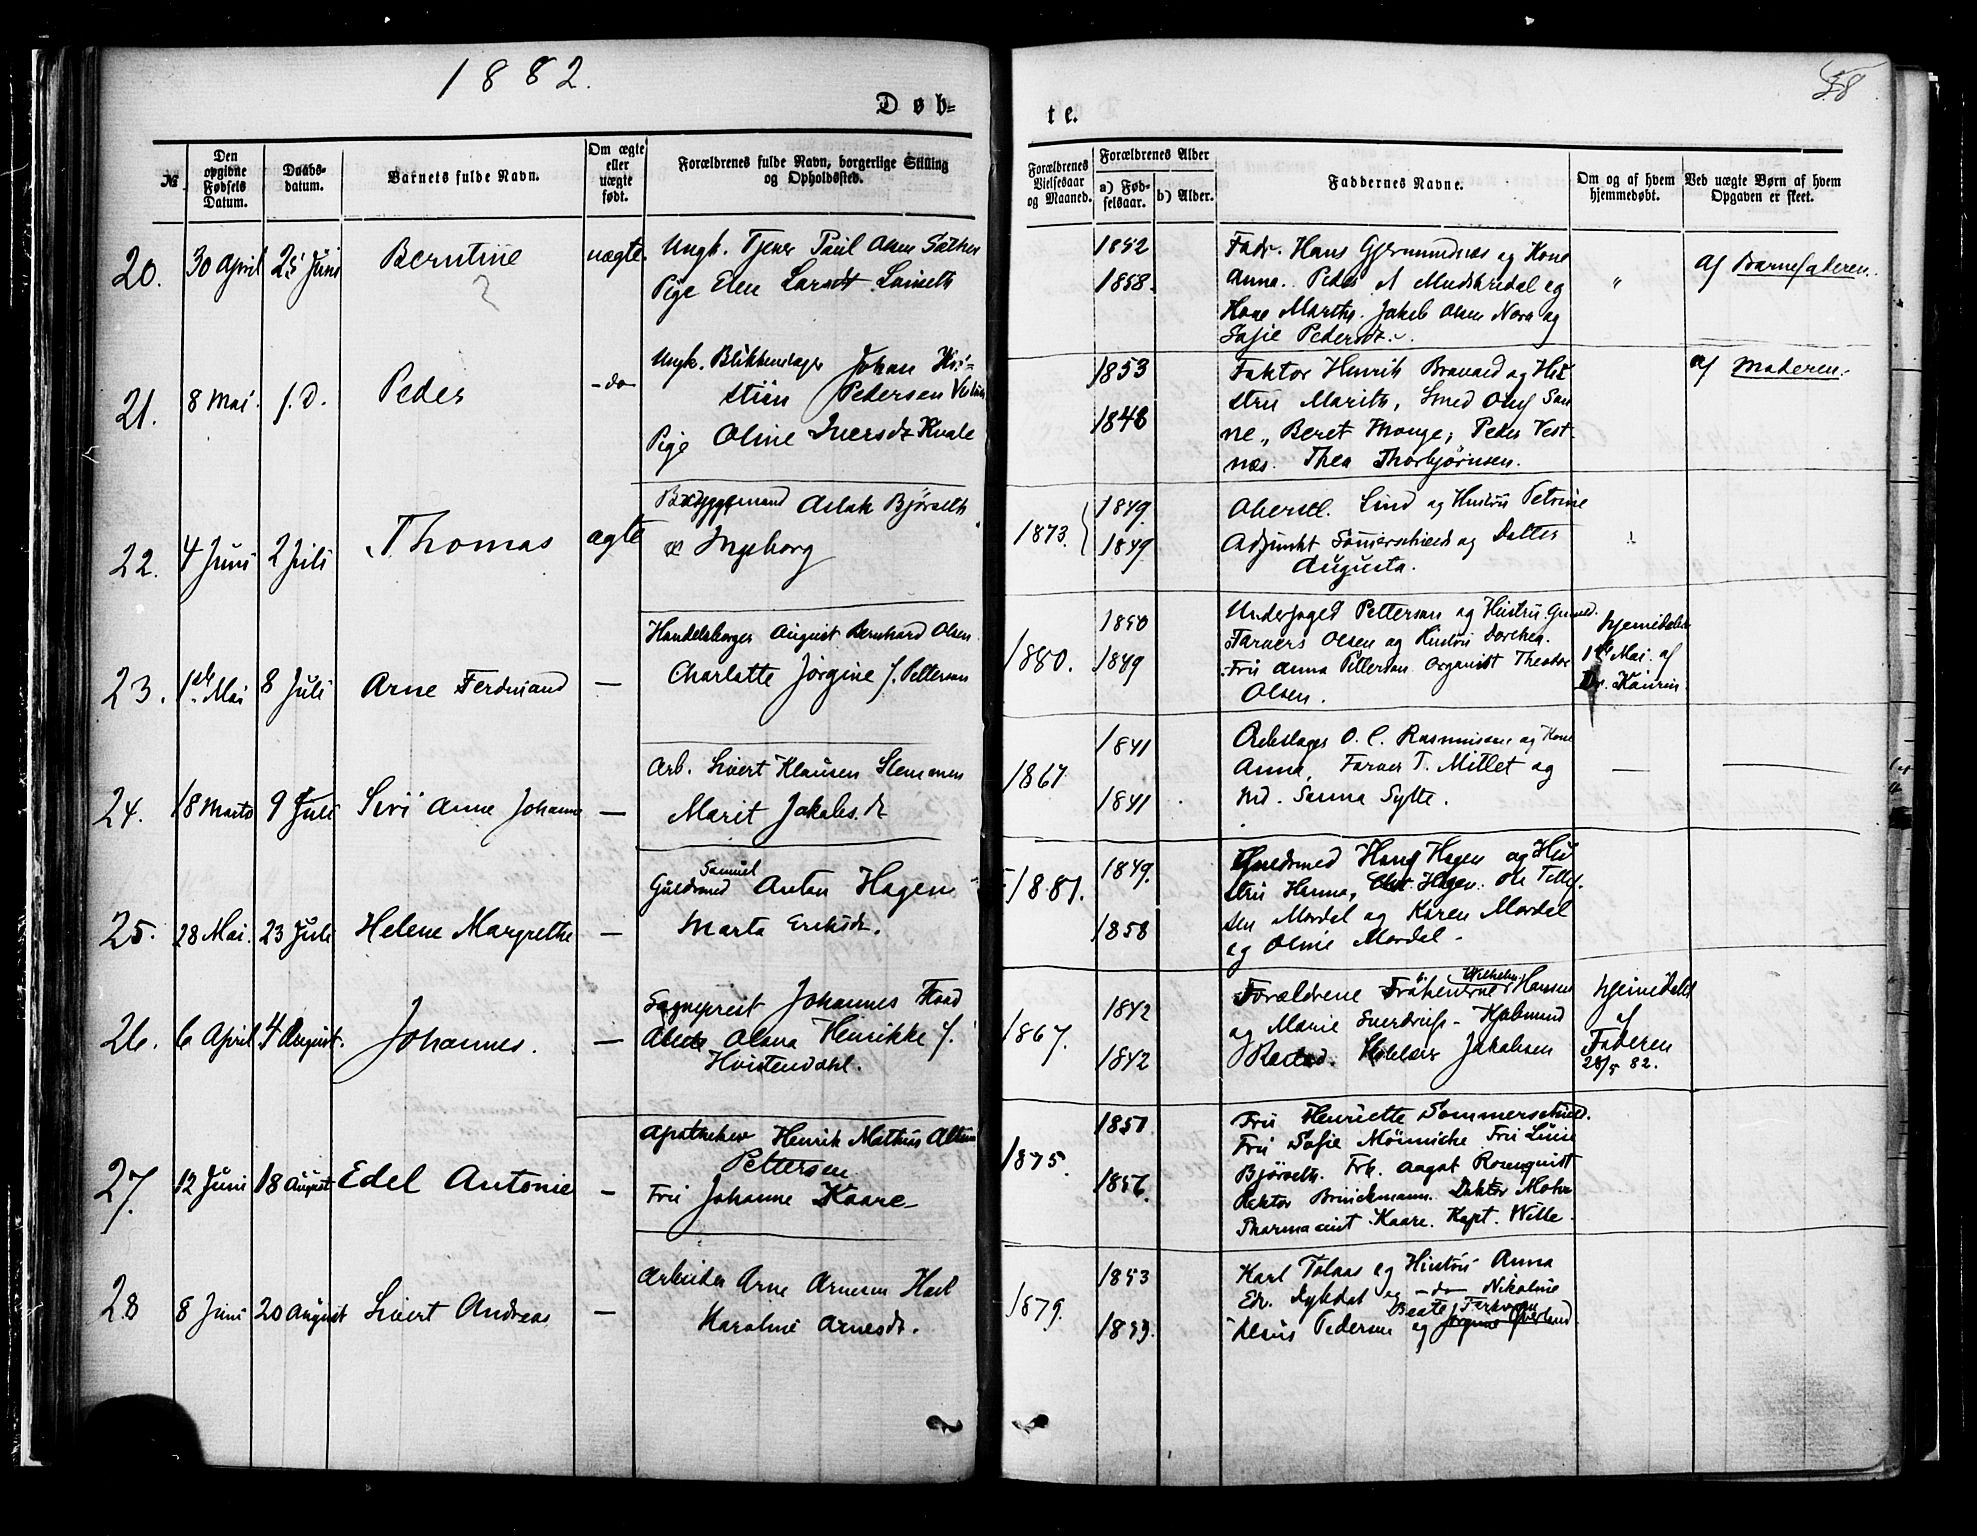 1882.
58.
Døb=
te.
№
Den opgivne Fødsels Datum.
Daabs-datum.
Barnets fulde Navn.
Om ægte eller uægte født.
Forældrenes fulde Navn, borgerlige Stilling og Opholdssted.
Forældrenes Vielsesaar og Maaned.
Forældrenes Alder
a) Fødselsaar.
b) Alder.
Faddernes Navne.
Om og af hvem hjemmedøbt.
Ved uægte Børn af hvem Opgaven er skeet.
20.
30 April
25 Juni
Berntine
uægte.
Ungk. Tjener Paul Olsen
Pige Elen Larsdt
1852
1858.
Hans Gjermundnæs og Kone
Anna. Peder og
Kone Marthe. Jakob Olsen Nora og
Pedersdt.
"
Af Barnefaderen.
21.
8 Mai.
s. D.
Peder
-do-
Ungk. Blikkenslager Johan Kri-
stian Pedersen
Pige Oline Iversdt Kvale
1853
1848
Faktor Henrik Bravard og Hu
stru Marith, Smed Oluf San
ne, Beret Monge, Peder Vest-
næs. Thea Thorbjørnsen.
af Moderen.
22.
4 Juni
2 Juli
Thomas
ægte
Aslak Bjørseth
Ingeborg
1873.
1849.
1849
Lind og Hustru Petrine
Adjunkt og Datter
Augusta.
23.
1ste Mai
8 Juli
Arne Ferdinand
—
Handelsborger August Bernhard Olsen
Charlotte Jørgine f. Petterson
1880.
1850
1849
Underfoged Petterson og Hustru
Farvers Olsen og Hustru Dorthea.
Fru Anna Petterson Organist Theodor
Olsen.
hjemmedøbt
1ste Mai. af
Dr. Kaurin.
24.
18 Marts
9 Juli
Sivi Anne Johanne
—
Arb. Sivert Klausen
Marit Jakobsdt
1867.
1841
1841
O. C. Rasmussen og Kone
Anna, Farver T. Millet og
Md. Sanna Sylte.
—
—
25.
28 Mai.
23 Juli
Helene Margrethe
—
Samuel
Guldsmed Anton Hagen
Marta Eriksdt.
1881.
1849.
1858
Guldsmed Hans Hagen og Hu
stru Hanna, Chr. Hagen. Ole
sen Mordal og Karen Mordal
og Oline Mordal.
26.
6 April
4 August.
Johannes.
—
Sogneprest Johannes
Olava Henrikke f.
Hvistendahl.
1867.
1842
1842
Forældrene Frøknerne Hansen
og Marie Sverdrup. Hjalmund
Jakobsen
hjemmedøbt
af
Faderen
28/5 82.
27.
12 Juni
18 August
Edel Antonie
—
Apotheker Henrik Mathias
Pettersen
Fru Johanne Kaare
1875.
1851.
1856.
Fru Henriette Sommerschield.
Fru Sofie Mönniche Fru Luise
Bjørseth. Frk. Aagot Rosenqvist
Rektor Brinckmann. Doktor Mohr
Pharmaceut Kaare. Kapt. Wille.
28
8 Juni
20 August
Sivert Andreas
—
Arbeider Arne Arnesen
Karoline Arnesdt.
1879.
1853
1853.
Karl Tolaas og Hustru Anna
Edv. og -do- Nikoline
Beate
Pedersen og